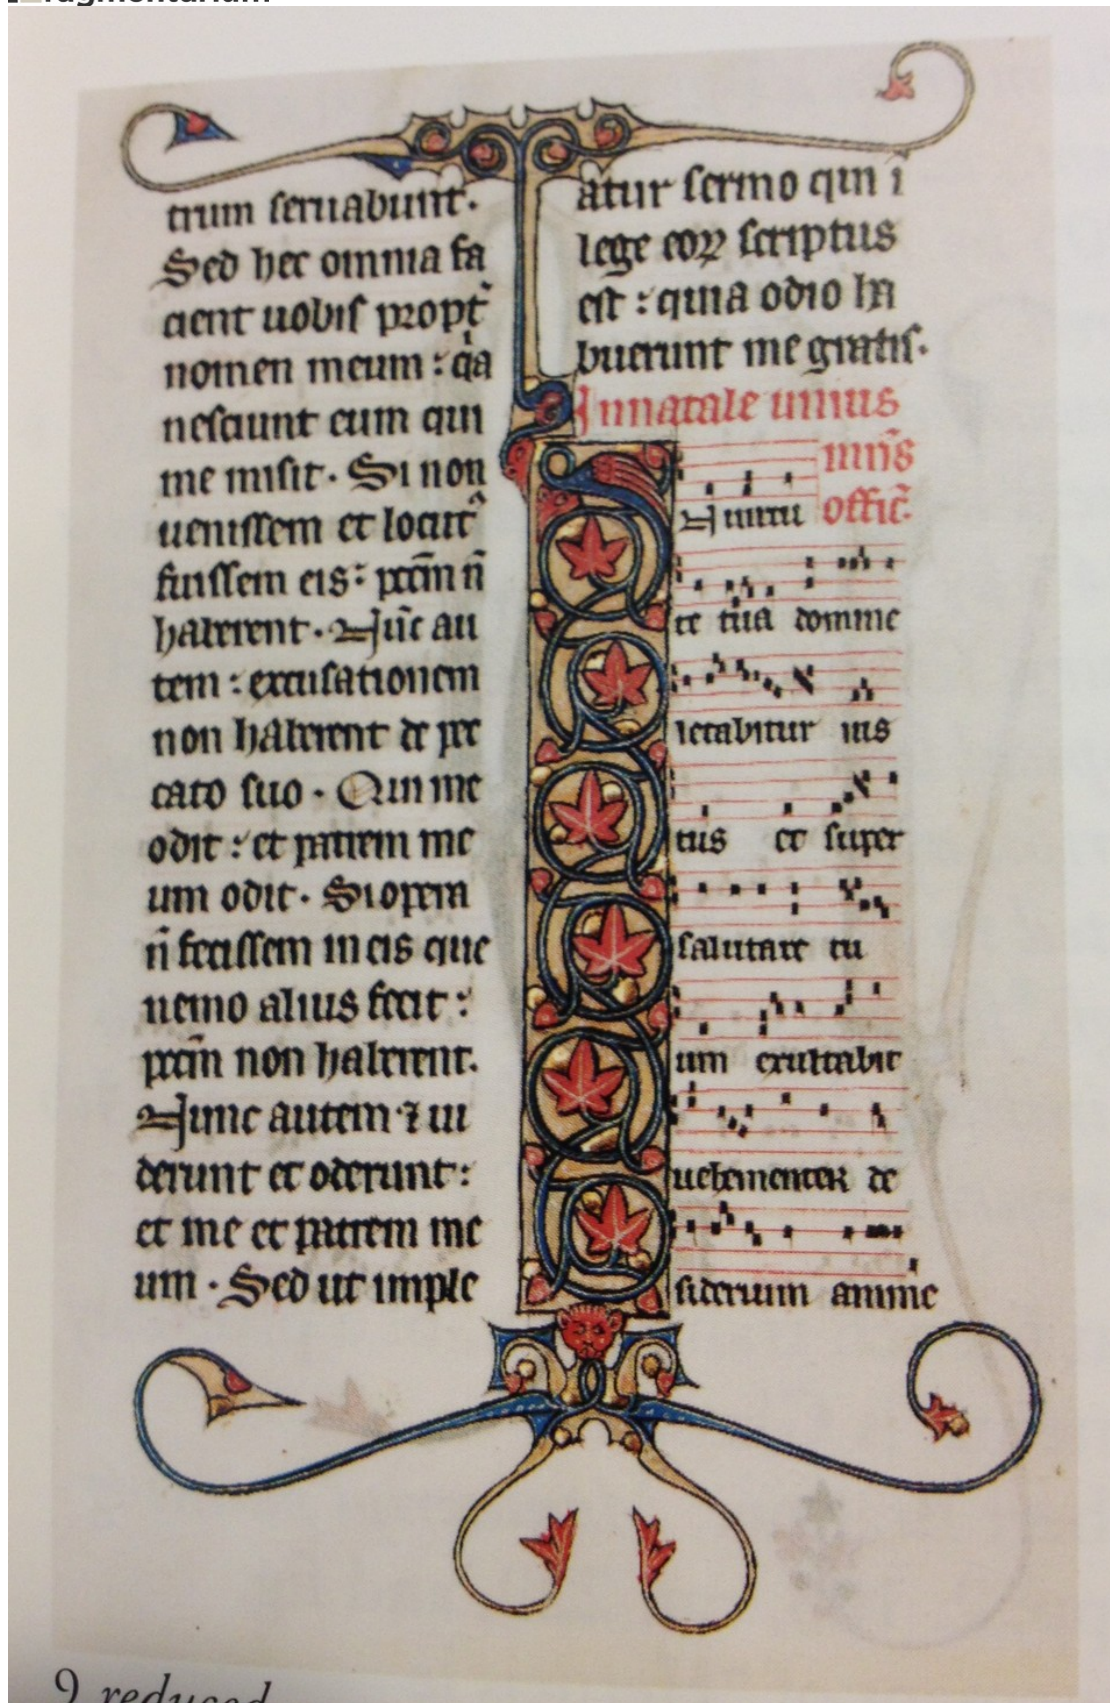 fragmentarium
trum seruabunt.
Sed hec omnia fa
cient uobis propt̾
nomen meum : q̇a
nesciunt eum qui
me misit. Si non
uenissem et locut᷒
fuissem eis : pcc̄m n̄
haberent. Nūc au
tem : excusationem
non haberent de pec
cato suo. Qui me
odit : et patrem me
um odit. Si opera
n̄ fecissem in eis que
nemo alius fecit :
pccm̄ non haberent.
Nunc autem ⁊ ui
derunt et oderunt :
et me et patrem me
um. Sed ut imple
atur sermo qui ī
lege eoꝝ scriptus
est : quia odio ha
buerunt me gratis.
In natale unius
mr̄is
offic̄.
In uirtu
te tua domine
letabitur ius
tus et super
salutare tu
um exultabit
uehementer de
siderium anime
9 reduced